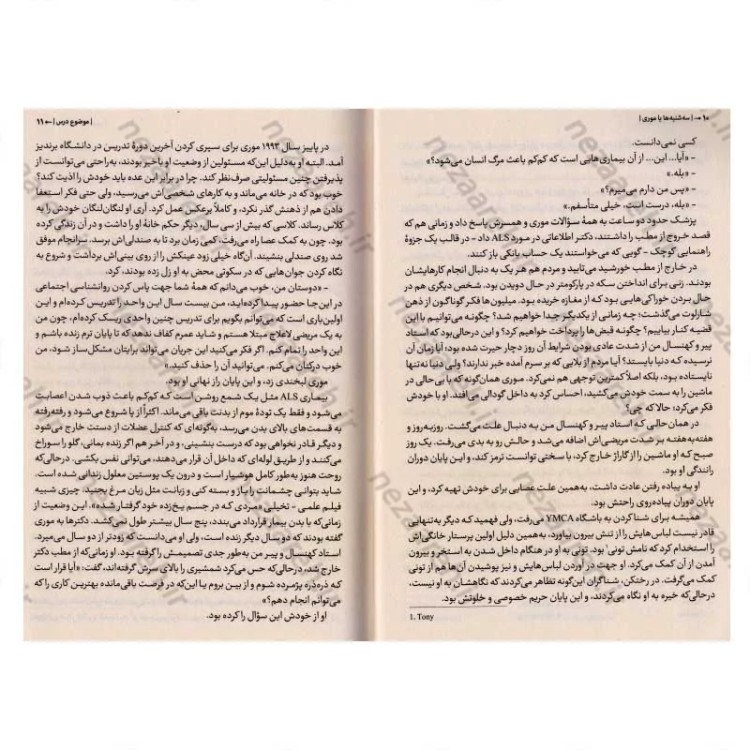 ۱۰ → | سه‌شنبه‌ها با موری |
کسی نمی‌دانست.
- «آیا... این... از آن بیماری‌هایی است که کم‌کم باعث مرگ انسان می‌شود؟»
- «بله.»
- «پس من دارم می‌میرم؟»
- «بله، درست است، خیلی متأسفم.»
پزشک حدود دو ساعت به همهٔ سؤالات موری و همسرش پاسخ داد و زمانی هم که
قصد خروج از مطب را داشتند، دکتر اطلاعاتی در مورد ALS داد - در قالب یک جزوهٔ
راهنمایی کوچک - گویی که می‌خواستند یک حساب بانکی باز کنند.
در خارج از مطب خورشید می‌تابید و مردم هم هر یک به دنبال انجام کارهایشان
بودند. زنی برای انداختن سکه در پارکومتر در حال دویدن بود. شخص دیگری هم در
حال بردن خوراکی‌هایی بود که از مغازه خریده بود. میلیون‌ها فکر گوناگون از ذهن
شارلوت می‌گذشت؛ چه زمانی از یکدیگر جدا خواهیم شد؟ چگونه می‌توانیم با این
قضیه کنار بیاییم؟ چگونه قبض‌ها را پرداخت خواهیم کرد؟ و این درحالی‌بود که استاد
پیر و کهنسال من از شدت عادی بودن شرایط آن روز دچار حیرت شده بود، آیا زمان آن
نرسیده که دنیا بایستد؟ آیا مردم از بلایی که بر سرم آمده خبر ندارند؟ ولی دنیا نه‌تنها
نایستاده بود، بلکه اصلاً کمترین توجهی هم نمی‌کرد. موری همان‌گونه که با بی‌حالی در
ماشین را به سمت خودش می‌کشید، احساس کرد به داخل گودالی می‌افتد. او با خودش
فکر می‌کرد؛ حالا که چی؟
در همان حالی که استاد پیر و کهنسال من به دنبال علت می‌گشت. روزبه‌روز و
هفته‌به‌هفته بر شدت مریضی‌اش اضافه می‌شد و حالش رو به بدی می‌رفت. یک روز
صبح که او ماشین را از گاراژ خارج کرد، با سختی توانست ترمز کند، و این پایان دوران
رانندگی او بود.
او به پیاده رفتن عادت داشت، به‌همین علت عصایی برای خودش تهیه کرد، و این
پایان دوران پیاده‌روی راحتش بود.
همیشه برای شنا کردن به باشگاه YMCA می‌رفت، ولی فهمید که دیگر به‌تنهایی
قادر نیست لباس‌هایش را از تنش بیرون بیاورد، به‌همین دلیل اولین پرستار خانگی‌اش
را استخدام کرد که نامش تونی۱ بود. تونی به او در هنگام داخل شدن به استخر و بیرون
آمدن از آن کمک می‌کرد. او جهت در آوردن لباس‌هایش و نیز پوشیدن آن‌ها هم از تونی
کمک می‌گرفت. در رختکن، شناگران این‌گونه تظاهر می‌کردند که نگاهشان به او نیست،
درحالی‌که خیره به او نگاه می‌کردند، و این پایان حریم خصوصی و خلوتش بود.
1. Tony
| موضوع درس | ← ۱۱
در پاییز سال ۱۹۹۴ موری برای سپری کردن آخرین دورهٔ تدریس در دانشگاه برندیز
آمد. البته او به‌دلیل این‌که مسئولین از وضعیت او باخبر بودند، به‌راحتی می‌توانست از
پذیرفتن چنین مسئولیتی صرف‌نظر کند. چرا در برابر این عده باید خودش را اذیت کند؟
خوب بود که در خانه می‌ماند و به کارهای شخصی‌اش می‌رسید، ولی حتی فکر استعفا
دادن هم از ذهنش گذر نکرد، و کاملاً برعکس عمل کرد. آری او لنگان‌لنگان خودش را به
کلاس رساند. کلاسی که بیش از سی سال، دیگر حکم خانهٔ او را داشت و در آن زندگی کرده
بود. چون به کمک عصا راه می‌رفت، کمی زمان برد تا به صندلی‌اش برسد. سرانجام موفق
شد روی صندلی بنشیند. آنگاه خیلی زود عینکش را از روی بینی‌اش برداشت و شروع به
نگاه کردن جوان‌هایی که در سکوتی محض به او زل زده بودند، کرد.
- «دوستان من، خوب می‌دانم که همهٔ شما جهت پاس کردن روانشناسی اجتماعی
در این‌جا حضور پیدا کرده‌اید، من بیست سال این واحد را تدریس کرده‌ام و این
اولین‌باری است که می‌توانم بگویم برای تدریس چنین واحدی ریسک کرده‌ام، چون من
به یک مریضی لاعلاج مبتلا هستم و شاید عمرم کفاف ندهد که تا پایان ترم زنده باشم و
این واحد را تمام کنم. اگر فکر می‌کنید این جریان می‌تواند برایتان مشکل‌ساز شود، من
خوب درکتان می‌کنم. می‌توانید آن را حذف کنید.»
موری لبخندی زد، و این پایان راز نهانی او بود.
بیماری ALS مثل یک شمع روشن است که کم‌کم باعث ذوب شدن اعصابت
می‌شود و فقط یک تودهٔ موم از بدنت باقی می‌ماند. اکثراً از پا شروع می‌شود و رفته‌رفته
به قسمت‌های بالای بدن می‌رسد، به‌گونه‌ای که کنترل عضلات از دستت خارج می‌شود
و دیگر قادر نخواهی بود که درست بنشینی، و در آخر هم اگر زنده بمانی، گلو را سوراخ
می‌کنند و از طریق لوله‌ای که داخل آن قرار می‌دهند، می‌توانی نفس بکشی. درحالی‌که
روحت هنوز به‌طور کامل هوشیار است و درون یک پوستین معلول زندانی شده است.
شاید بتوانی چشمانت را باز و بسته کنی و زبانت مثل زبان مرغ بجنبد. چیزی شبیه
فیلم علمی - تخیلی «مردی که در جسم یخ‌زده خود گرفتار شده». این وضعیت از
زمانی‌که با بدن بیمار قرارداد می‌بندد، پنج سال بیشتر طول نمی‌کشد. دکترها به موری
گفته بودند که دو سال دیگر زنده است، ولی او می‌دانست که زودتر از دو سال می‌میرد.
استاد کهنسال و پیر من به‌طور جدی تصمیمش را گرفته بود. او زمانی‌که از مطب دکتر
خارج شد، درحالی‌که حس می‌کرد شمشیری را بالای سرش گرفته‌اند، گفت: «آیا قرار است
که ذره‌ذره پژمرده شوم و از بین بروم یا این‌که در فرصت باقی‌مانده بهترین کاری را که
می‌توانم انجام دهم؟»
او از خودش این سؤال را کرده بود.